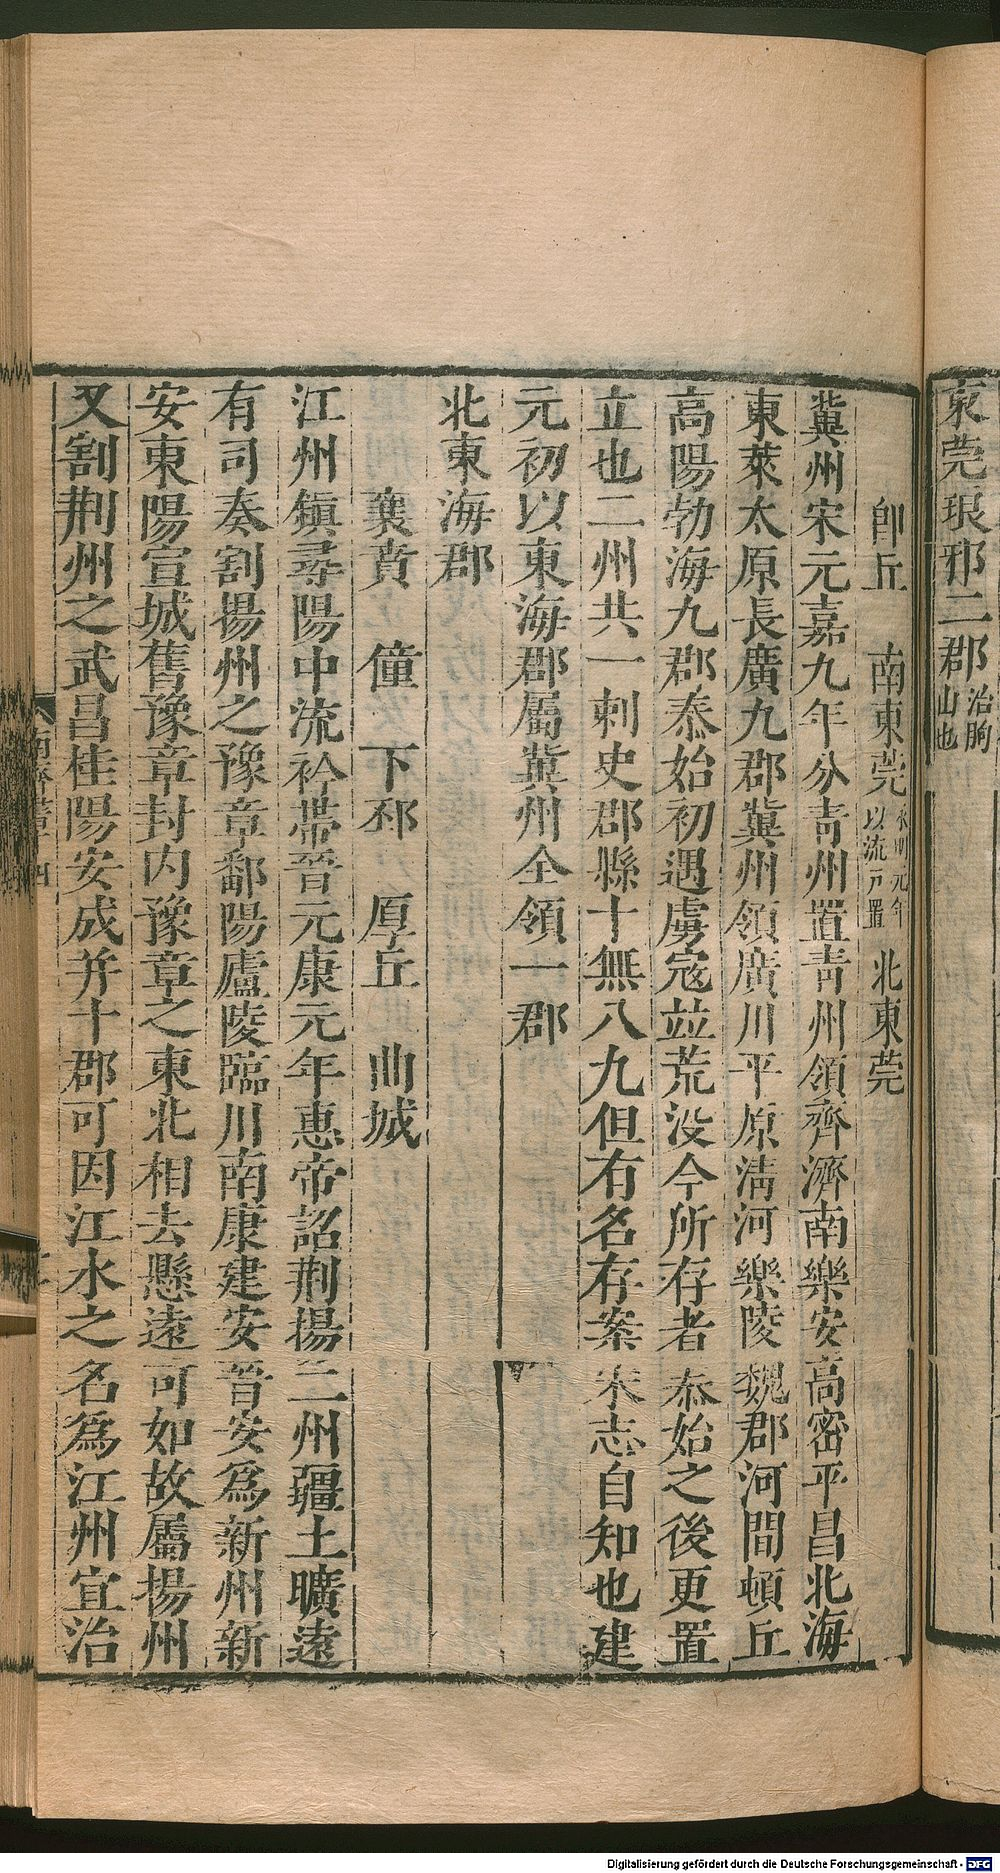 東莞琅邪二郡治朐山也
卽丘 南東莞永明元年以流戸置 北東莞
冀州宋元嘉九年分青州置青州領齊濟南樂安高密平昌北海
東萊太原長廣九郡冀州領廣川平原淸河樂陵魏郡河間頓丘
高陽勃海九郡泰始初遇虜寇並荒沒今所存者泰始之後更置
立也二州共一刺史郡縣十無八九但有名存案宋志自知也建
元初以東海郡屬冀州全領一郡
北東海郡
襄賁 僮 下邳 厚丘 曲城
江州鎭尋陽中流衿帶晉元康元年惠帝詔荆揚二州疆土曠遠
有司奏割揚州之豫章鄱陽廬陵臨川南康建安晉安爲新州新
安東陽宣城舊豫章封内豫章之東北相去懸遠可如故屬揚州
又割荆州之武昌桂陽安成并十郡可因江水之名爲江州宜治
南齊書十四
Digitalisierung gefördert durch die Deutsche Forschungsgemeinschaft - DFG